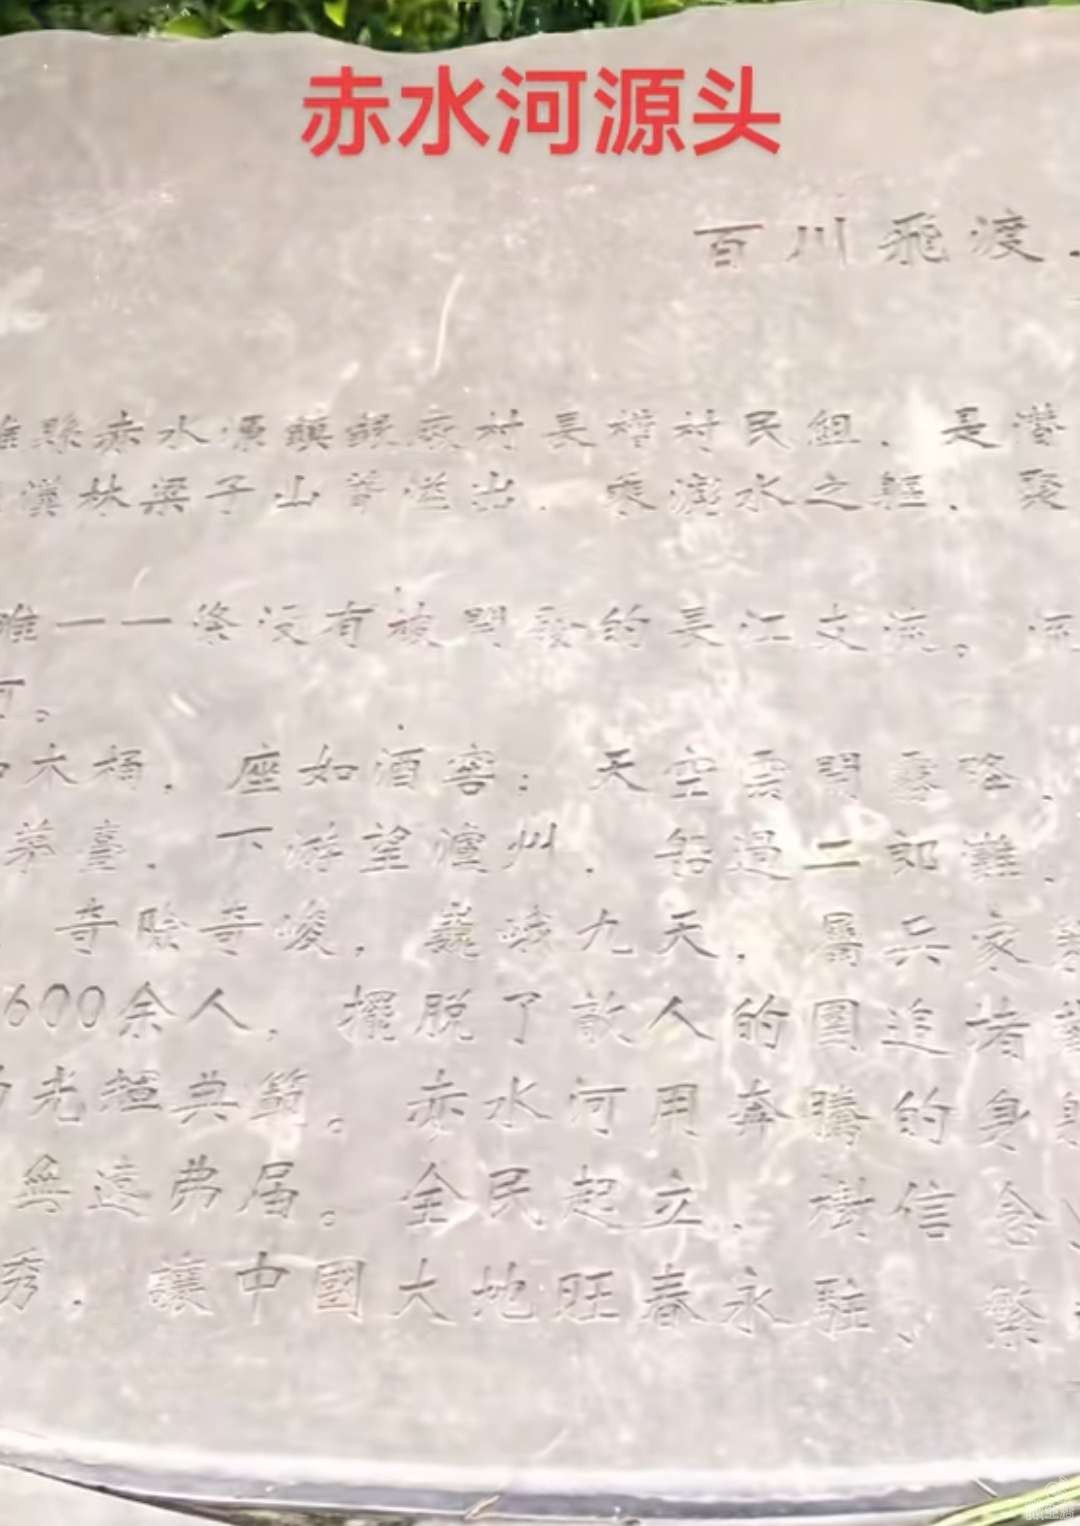 赤水河源头
百川飛渡.
雄縣赤水源鎮銀廠村長槽村民組.是潛
漢林梁子山脊溢出.乘澎水之軀.聚
唯一一條沒有被開發的長江支流。河
河。
木桶.座如酒窖;天空雲開霧降.
茅臺.下游望瀘州.船過二郎灘.
奇險奇峻,巍峨九天,屬兵家
600余人,擺脱了敵人的圍追堵截
光輝典範。赤水河用奔騰的身
無遠弗届。全民起立.樹信念
秀.讓中國大地旺春永駐、繁